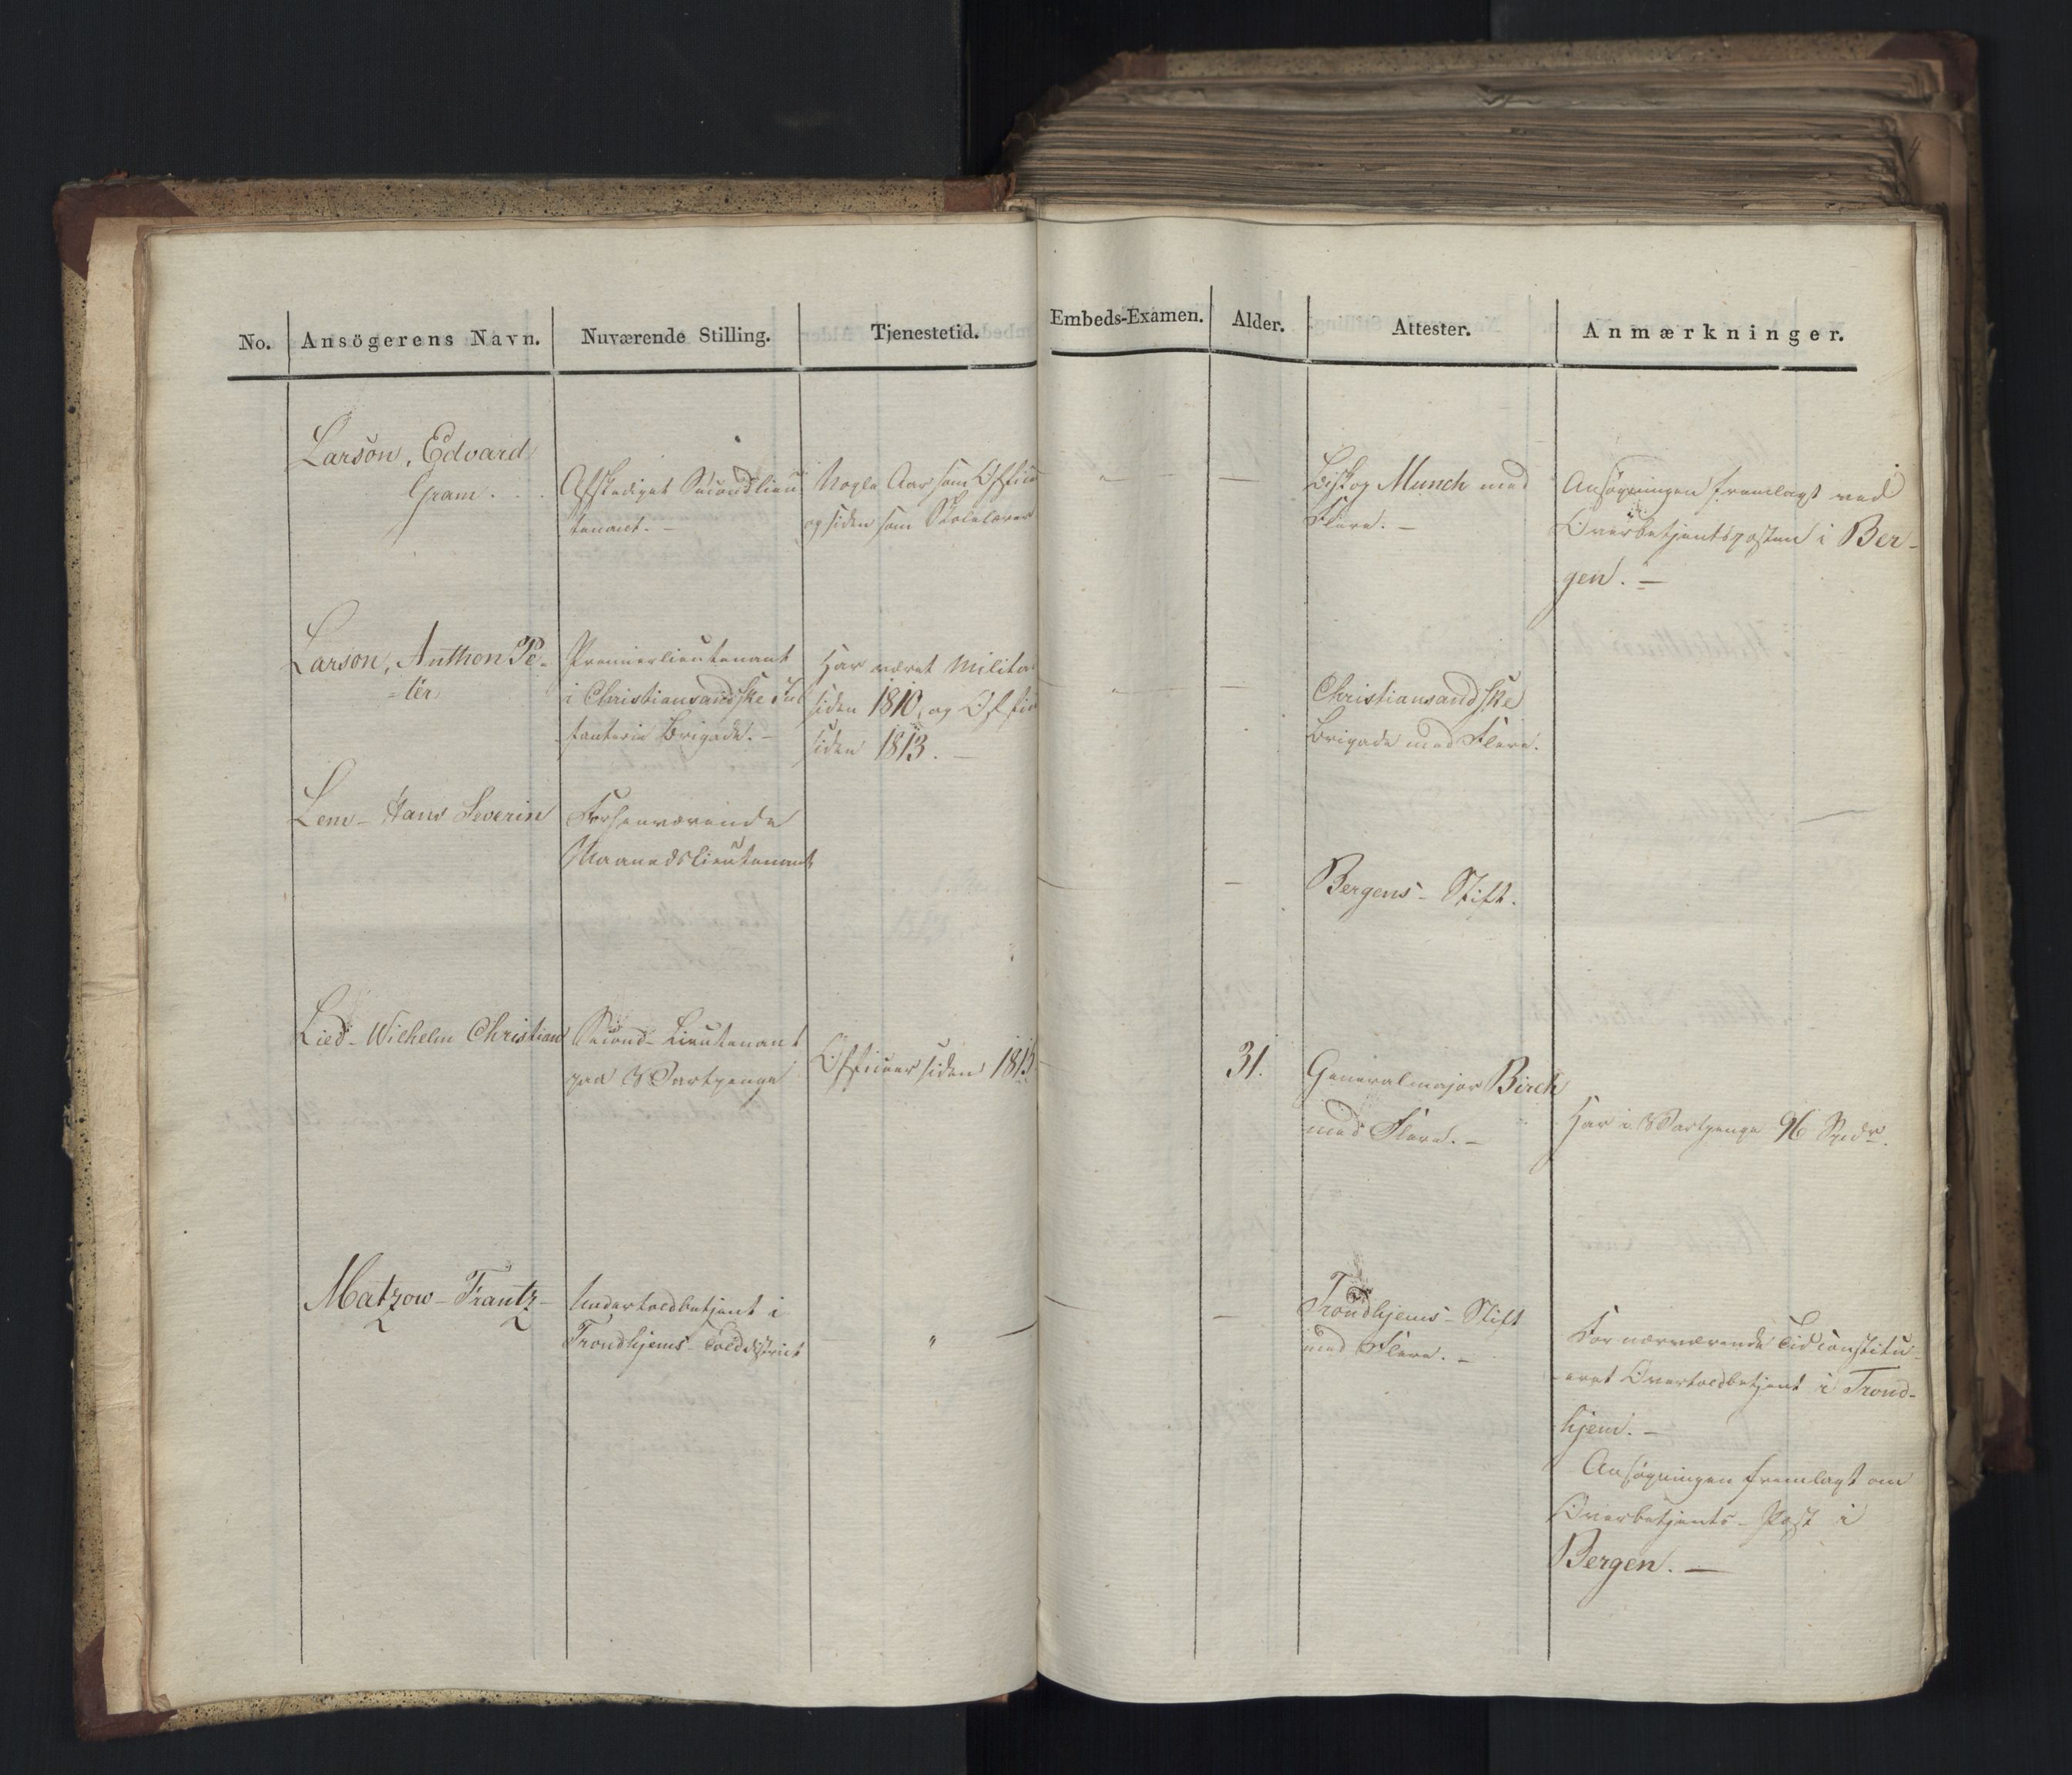 No. Ansögerens Navn. Nuværende Stilling. Tjenestetid. Embeds-Examen. Alder. Attester. Anmærkninger.
Larson, Edvard
Gram.
Afskediget Secondlieu
tenant. –
Nogle Aar som Offic
og siden som Skolelærer
"
—
Biskop Munch med
Flere. –
Ansøgningen fremlagt ved
Overbetjentsposten i Ber-
gen. –
Larson, Anthon Pe-
-ter
Premierlieutenant
i Christiansandske In
fanterie Brigade. –
Har været Militær
siden 1810, og Offic
siden 1813. –
"
—
Christiansandske
Brigade med Flere.
Lem – Hans Severin
Forhenværende
Maanedslieutenant
—
Bergens – Stift.
Lied – Wilhelm Christian
Second – Lieutenant
paa Vartpenge
Officier siden 1815
31.
Generalmajor Birch
med Flere. –
Har i Vartpenge 96 Spdr.
Matzow – Frantz –
Undertoldbetjent i
Trondhjems Tolddistrict
"
—
Trondhjems – Stift
med Flere. –
For nærværende Tid constitu-
-eret Overtoldbetjent i Trond-
hjem. –
Ansøgningen fremlagt om
Overbetjents – Post i
Bergen. —